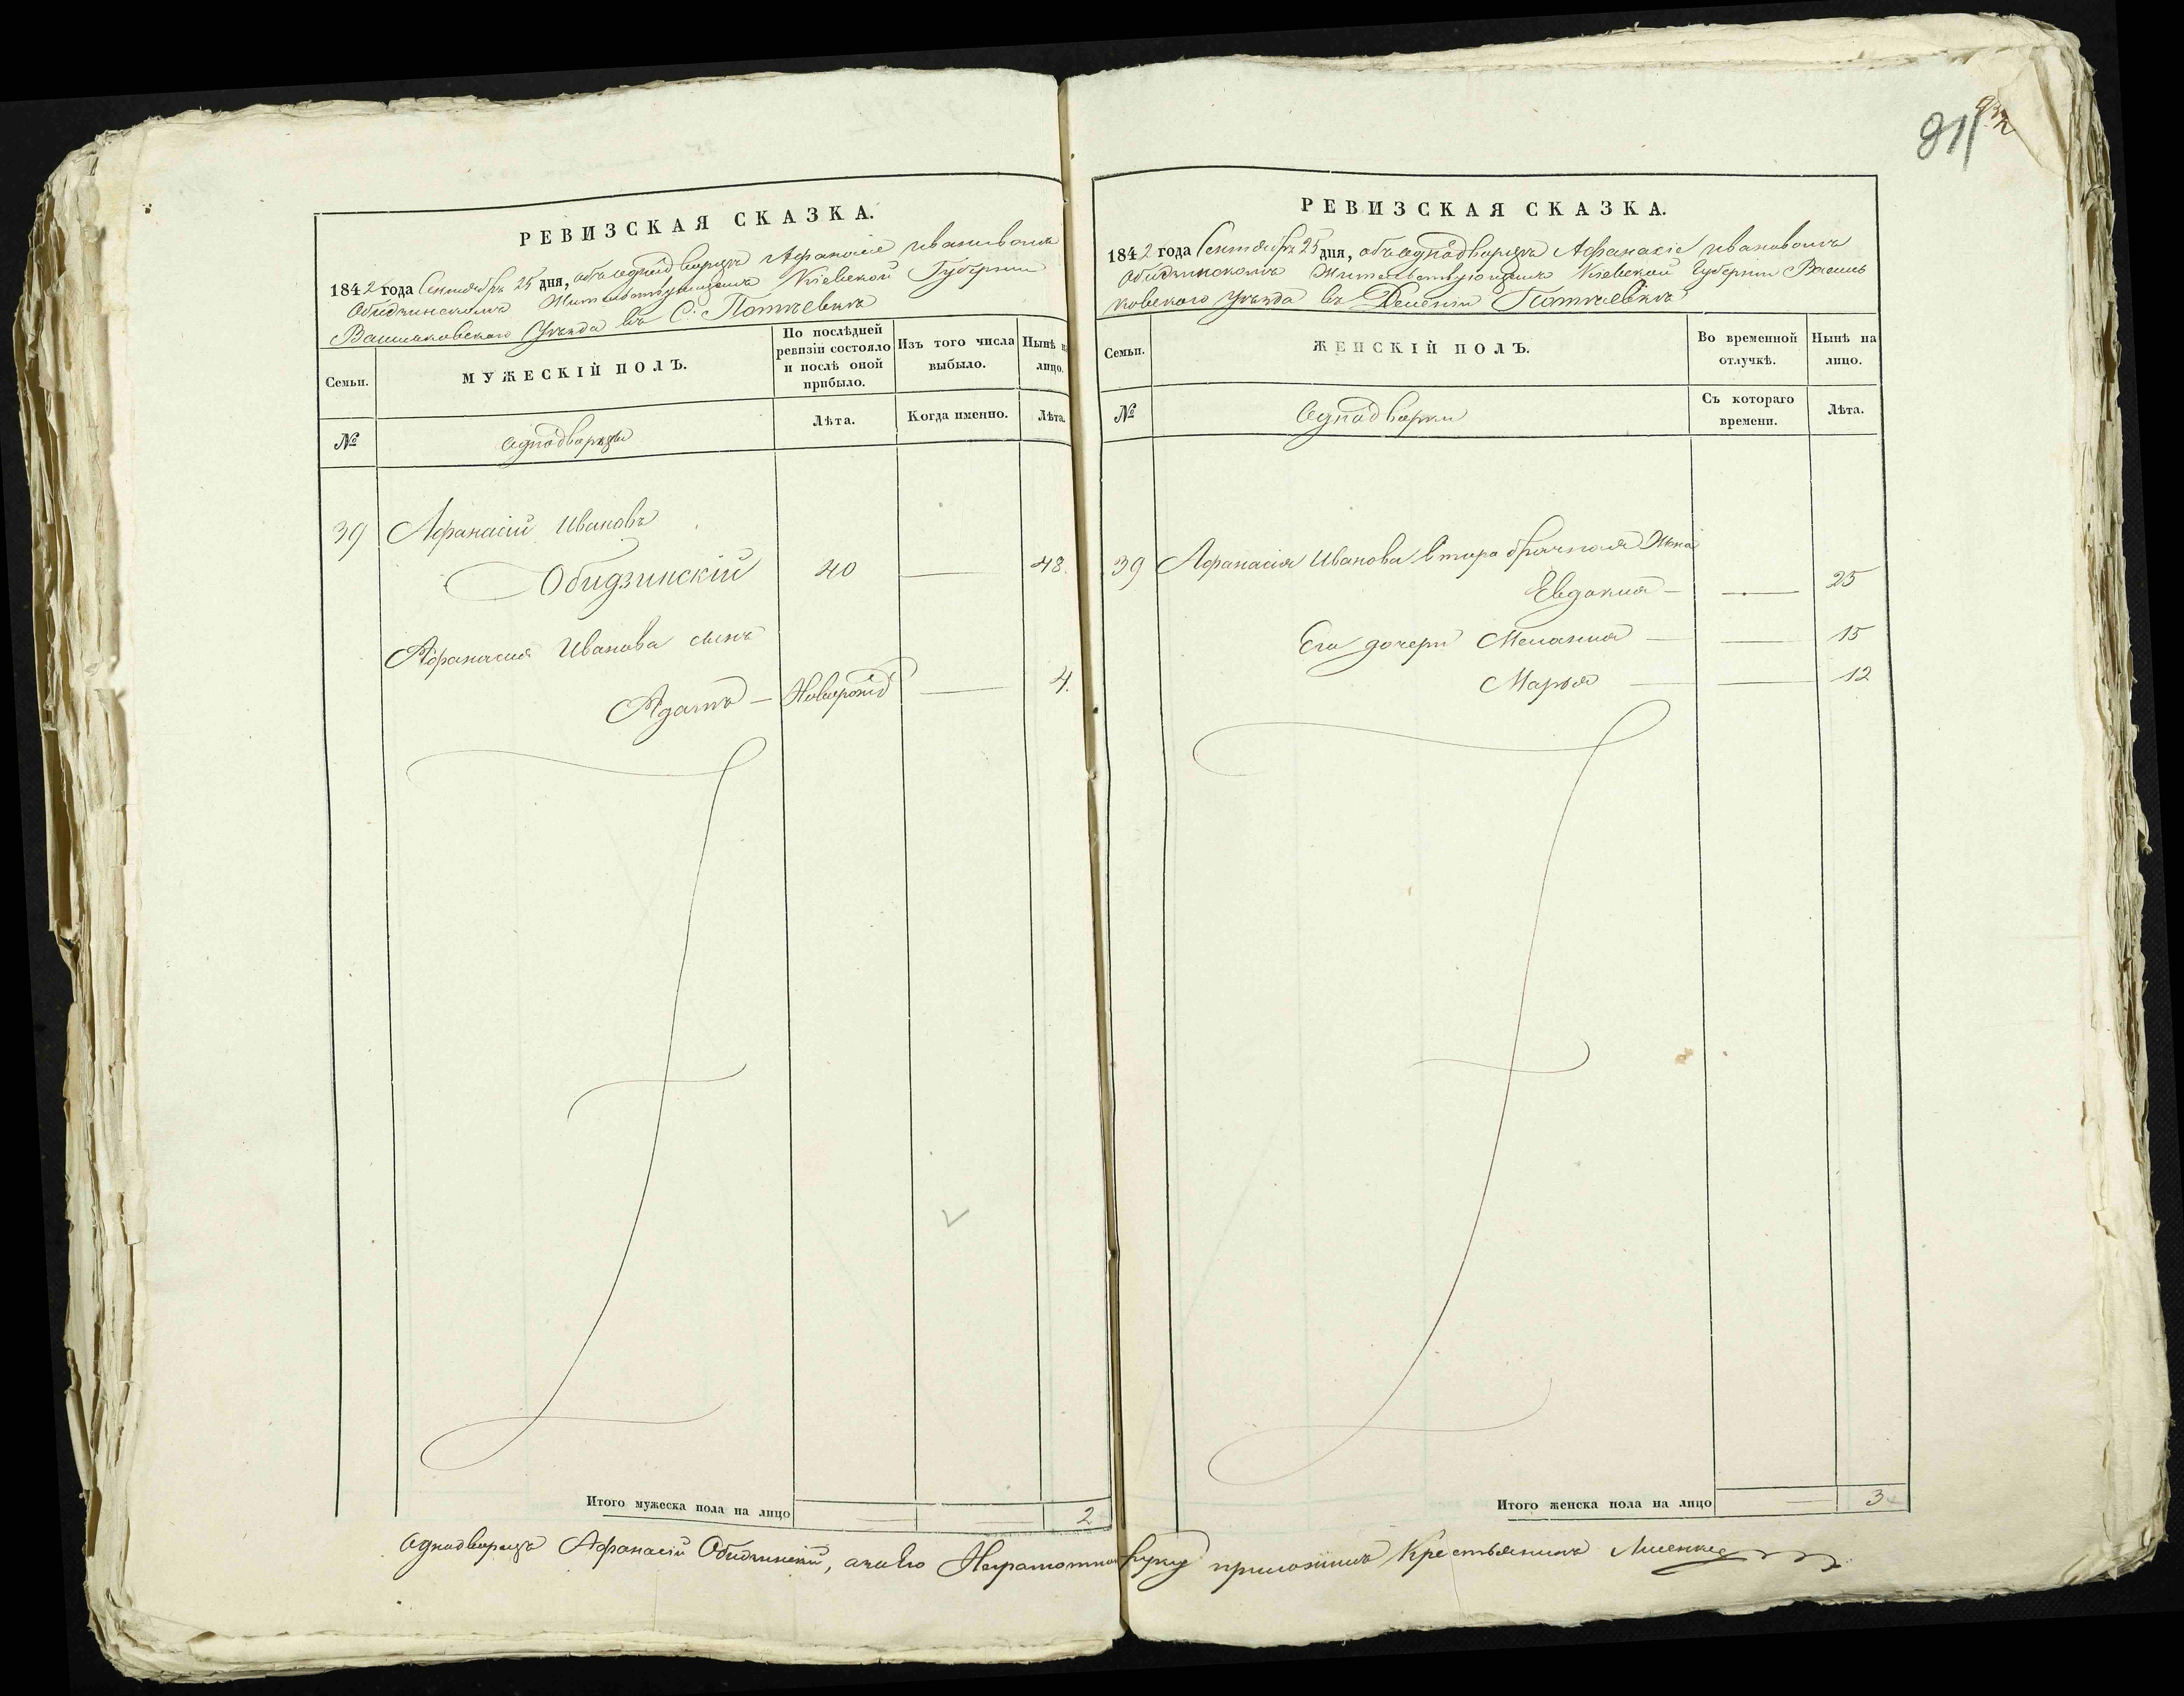 81
РЕВИЗСКАЯ СКАЗКА.
1842 года Сентября 25 дня, объ однодворцѣ Афанасіе Ивановомъ
Обидзинскомъ Жительствующемъ Кіевской Губерніи
Васильковскаго Уѣзда въ С. Потіевкѣ
Семьи.
МУЖЕСКІЙ ПОЛЪ.
По послѣдней ревизіи состояло и послѣ оной прибыло.
Изъ того числа выбыло.
Нынѣ на лицо.
№
Однодворцы
Лѣта.
Когда именно.
Лѣта.
39 Афанасій Ивановъ
Обидзинскій 40 — 48.
Афанасія Иванова сынъ
Адамъ — Новорожд — 4.
Итого мужеска пола на лицо 2
РЕВИЗСКАЯ СКАЗКА.
1842 года Сентября 25 дня, объ однодворцѣ Афанасіе Ивановомъ
Обидзинскомъ Жительствующемъ Кіевской Губерніи Василь
ковскаго Уѣзда въ Селеніи Потіевкѣ
Семьи.
ЖЕНСКІЙ ПОЛЪ.
Во временной отлучкѣ.
Нынѣ на лицо.
№
Однодворки
Съ котораго времени.
Лѣта.
39 Афанасія Иванова вторабрачная Жена
Евдокія — — 25
Его дочери Меланія — — 15
Марья — — 12
Итого женска пола на лицо — 3
Однодворецъ Афанасій Обидзинскій, а за его Неграмотного руку приложилъ Крестьянинъ Лисенко